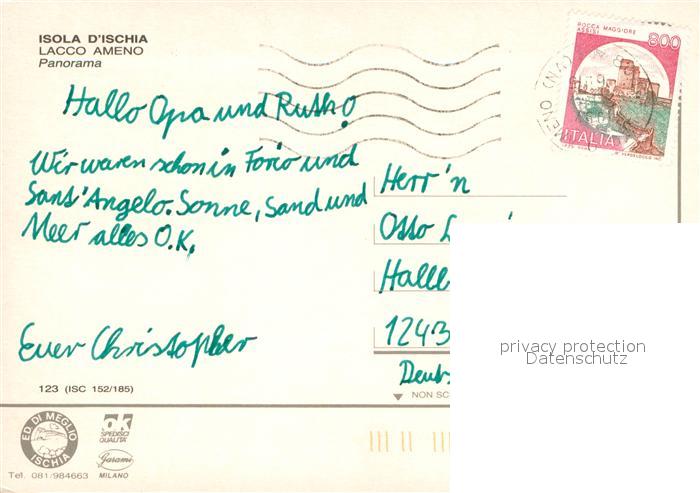 ISOLA D'ISCHIA
LACCO AMENO
Panorama
ROCCA MAGGIORE
ASSISI
800
ITALIA
Hallo Opa und Ruth!
Wir waren schon in Forio und
Sant'Angelo. Sonne, Sand und
Meer alles O.K.
Euer Christopher
Herr'n
Otto
Halle
1243
Deuts
privacy protection
Datenschutz
123 (ISC 152/185)
NON SC
ED. DI MEGLIO
ISCHIA
Tel. 081/984663
ak
SPEDISCI
QUALITÀ
Garami
MILANO